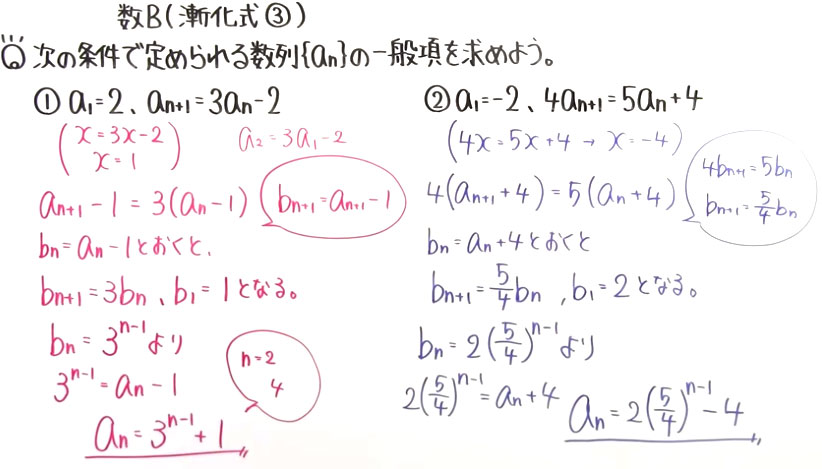 数B(漸化式③)
Q 次の条件で定められる数列{an}の一般項を求めよう。
① a1=2、an+1=3an-2
(x=3x-2
x=1)
a2=3a1-2
an+1-1=3(an-1)
bn+1=an+1-1
bn=an-1とおくと、
bn+1=3bn、b1=1となる。
bn=3^n-1より
3^n-1=an-1
n=2
4
an=3^n-1+1
② a1=-2、4an+1=5an+4
(4x=5x+4→x=-4)
4bn+1=5bn
bn+1=5/4bn
4(an+1+4)=5(an+4)
bn=an+4とおくと
bn+1=5/4bn,b1=2となる。
bn=2(5/4)^n-1より
2(5/4)^n-1=an+4
an=2(5/4)^n-1-4